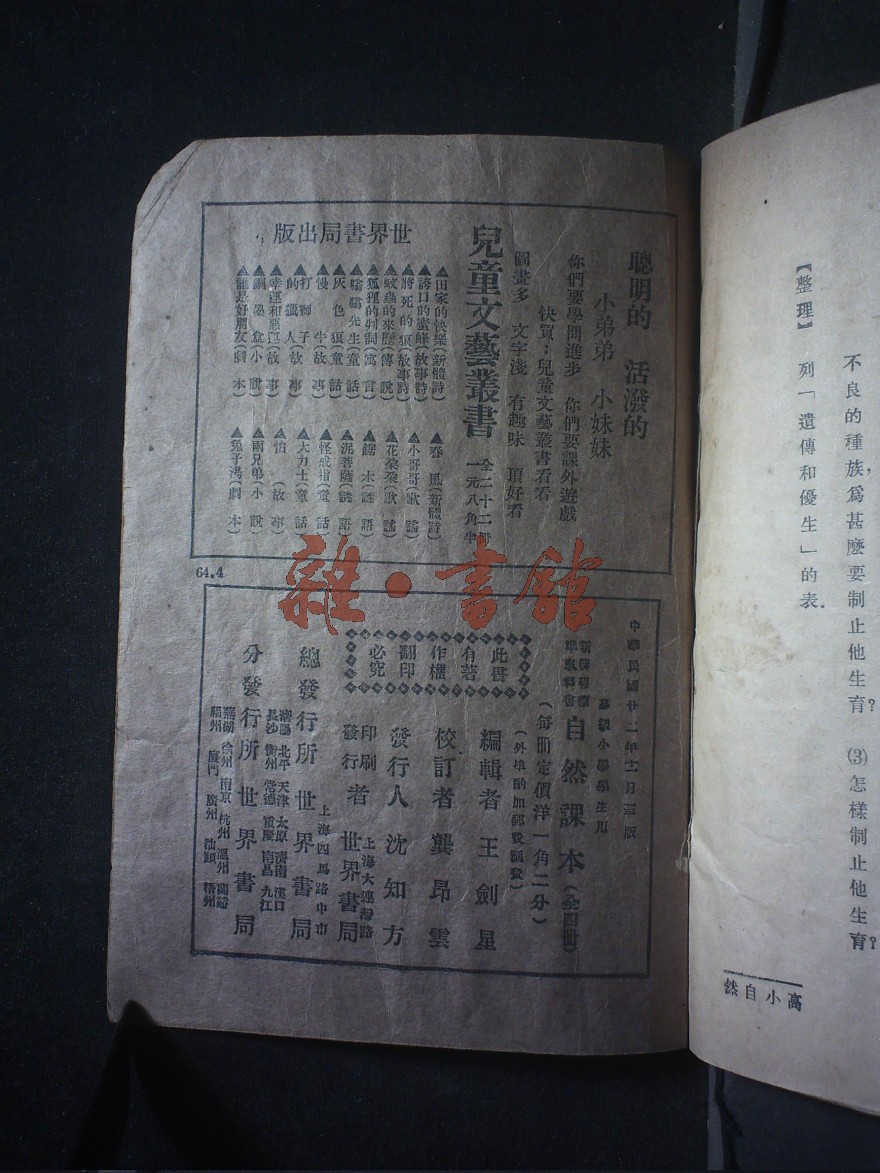 不良的種族,爲甚麼要制止他生育? (3)怎樣制止他生育?
【整理】 列「遺傳和優生」的表.
高小自然
聰明的 活潑的
小弟弟 小妹妹
你們要學問進步 你們要課外遊戲
快買:兒童文藝叢書看看
圖畫多 文字淺 有趣味 頂好看
兒童文藝叢書
全二十二冊
一元八角半
▲田家的快樂(新體詩)
▲誇口的蜜蜂(故事詩)
▲將死的狼(故事詩)
▲蚊蟲的來歷(傳說)
▲狐狸的判詞(寓言)
▲嗡嗡先生(童話)
▲灰色狼(童話)
▲慢牛(故事)
▲打獅子
的獵人(故事)
▲幸運和惡運(故事)
▲銅墨盒(小說)
▲誰是好朋友(劇本)
▲春風(新體詩)
▲小哥哥(歌謠)
▲花朶朶(歌謠)
▲鋸木(謎語)
▲泥菩薩(謎語)
▲怪戒指(童話)
▲大力士(童話)
▲怕(故事)
▲兩兄弟(小說)
▲兔子湯(劇本)
世界書局出版
64.4
中華民國廿二年十一月三版
高級小學學生用
新課程標準
自然課本(全四冊)
(每冊定價洋一角二分)
(外埠酌加郵費匯費)
此書
有著
作權
翻印
必究
編輯者 王劍星
校訂者 龔昂雲
發行人 沈知方
印刷
發行者 上海大連灣路 世界書局
總發行所 上海四馬路中市 世界書局
瀋陽 北平 天津 太原 濟南 漢口
長沙 衡州 常德 重慶 南昌 九江
分發行所 世界書局
蕪湖 徐州 南京 杭州 溫州 蘭谿
福州 廈門 廣州 汕頭 梧州
雜·書館